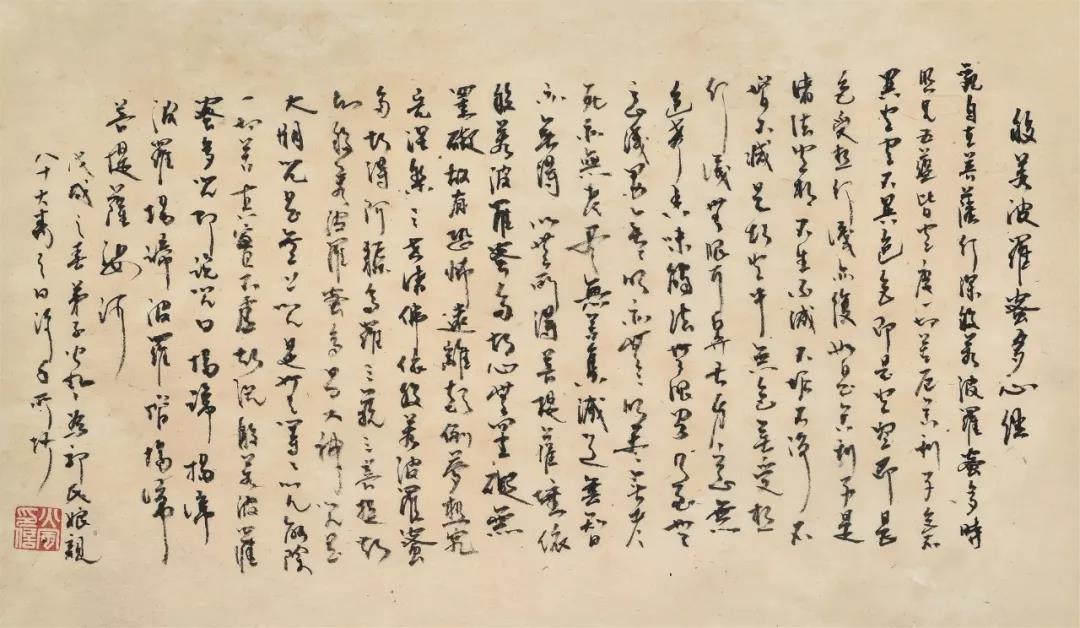 般若波羅蜜多心經
觀自在菩薩行深般若波羅蜜多時
照見五蘊皆空度一切苦厄舍利子色不
異空空不異色色即是空空即是
色受想行識亦復如是舍利子是
諸法空相不生不滅不垢不淨不
增不減是故空中無色無受想
行識無眼耳鼻舌身意無
色聲香味觸法無眼界乃至無
意識界無無明亦無無明盡乃至無老
死亦無老死盡無苦集滅道無智
亦無得以無所得菩提薩埵依
般若波羅蜜多故心無罣礙無
罣礙故有恐怖遠離顛倒夢想究
竟涅槃三世諸佛依般若波羅蜜
多故得阿耨多羅三藐三菩提故
知般若波羅蜜多是大神咒是
大明咒是無上咒是無等等咒能除
一切苦真實不虛故說般若波羅
蜜多咒即說咒曰揭諦揭諦
波羅揭諦波羅僧揭諦
菩提薩婆訶
戊戌之春弟子火風為祁氏娘親
八十大壽之日